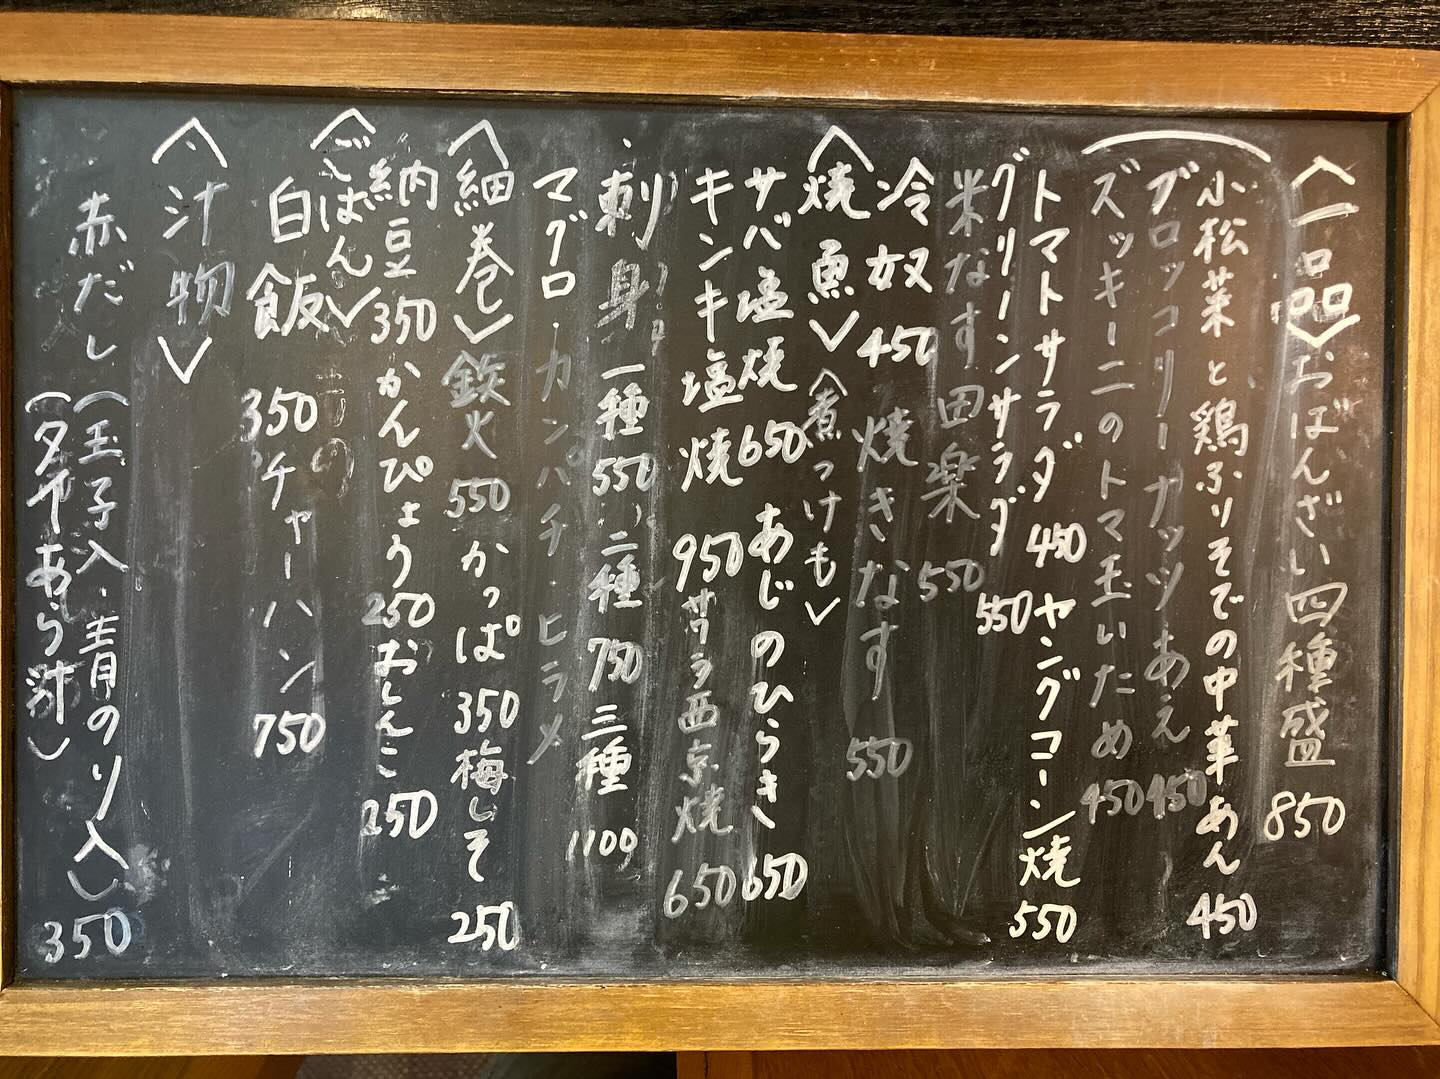 〈一品〉おばんざい四種盛 850
小松菜と鶏ふりそでの中華あん 450
ブロッコリーナッツあえ 450
ズッキーニのトマ玉いため 450
トマトサラダ 450 ヤングコーン焼 550
グリーンサラダ 550
米なす田楽 550
冷奴 450 焼きなす 550
〈焼魚〉〈煮つけも〉
サバ塩焼 650 あじのひらき 650
キンキ塩焼 950 サワラ西京焼 650
刺身 一種 550 二種 750 三種 1100
マグロ・カンパチ・ヒラメ
〈細巻〉鉄火 550 かっぱ 350 梅しそ 250
納豆 350 かんぴょう 250 おしんこ 250
〈ごはん〉
白飯 350 チャーハン 750
〈汁物〉
赤だし (玉子入・青のり入) 350
(タヤあら汁)